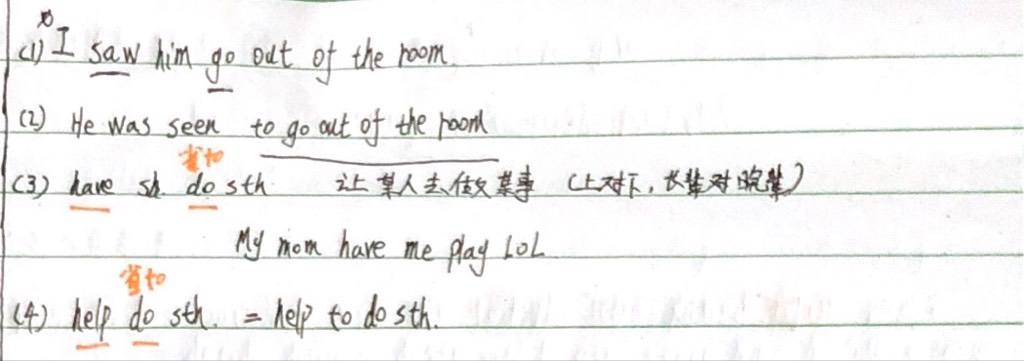 (1) I saw him go out of the room
(2) He was seen to go out of the room
省to
(3) have sb. do sth 让某人去做某事 (上对下,长辈对晚辈)
My mom have me play LOL
省to
(4) help do sth. = help to do sth.